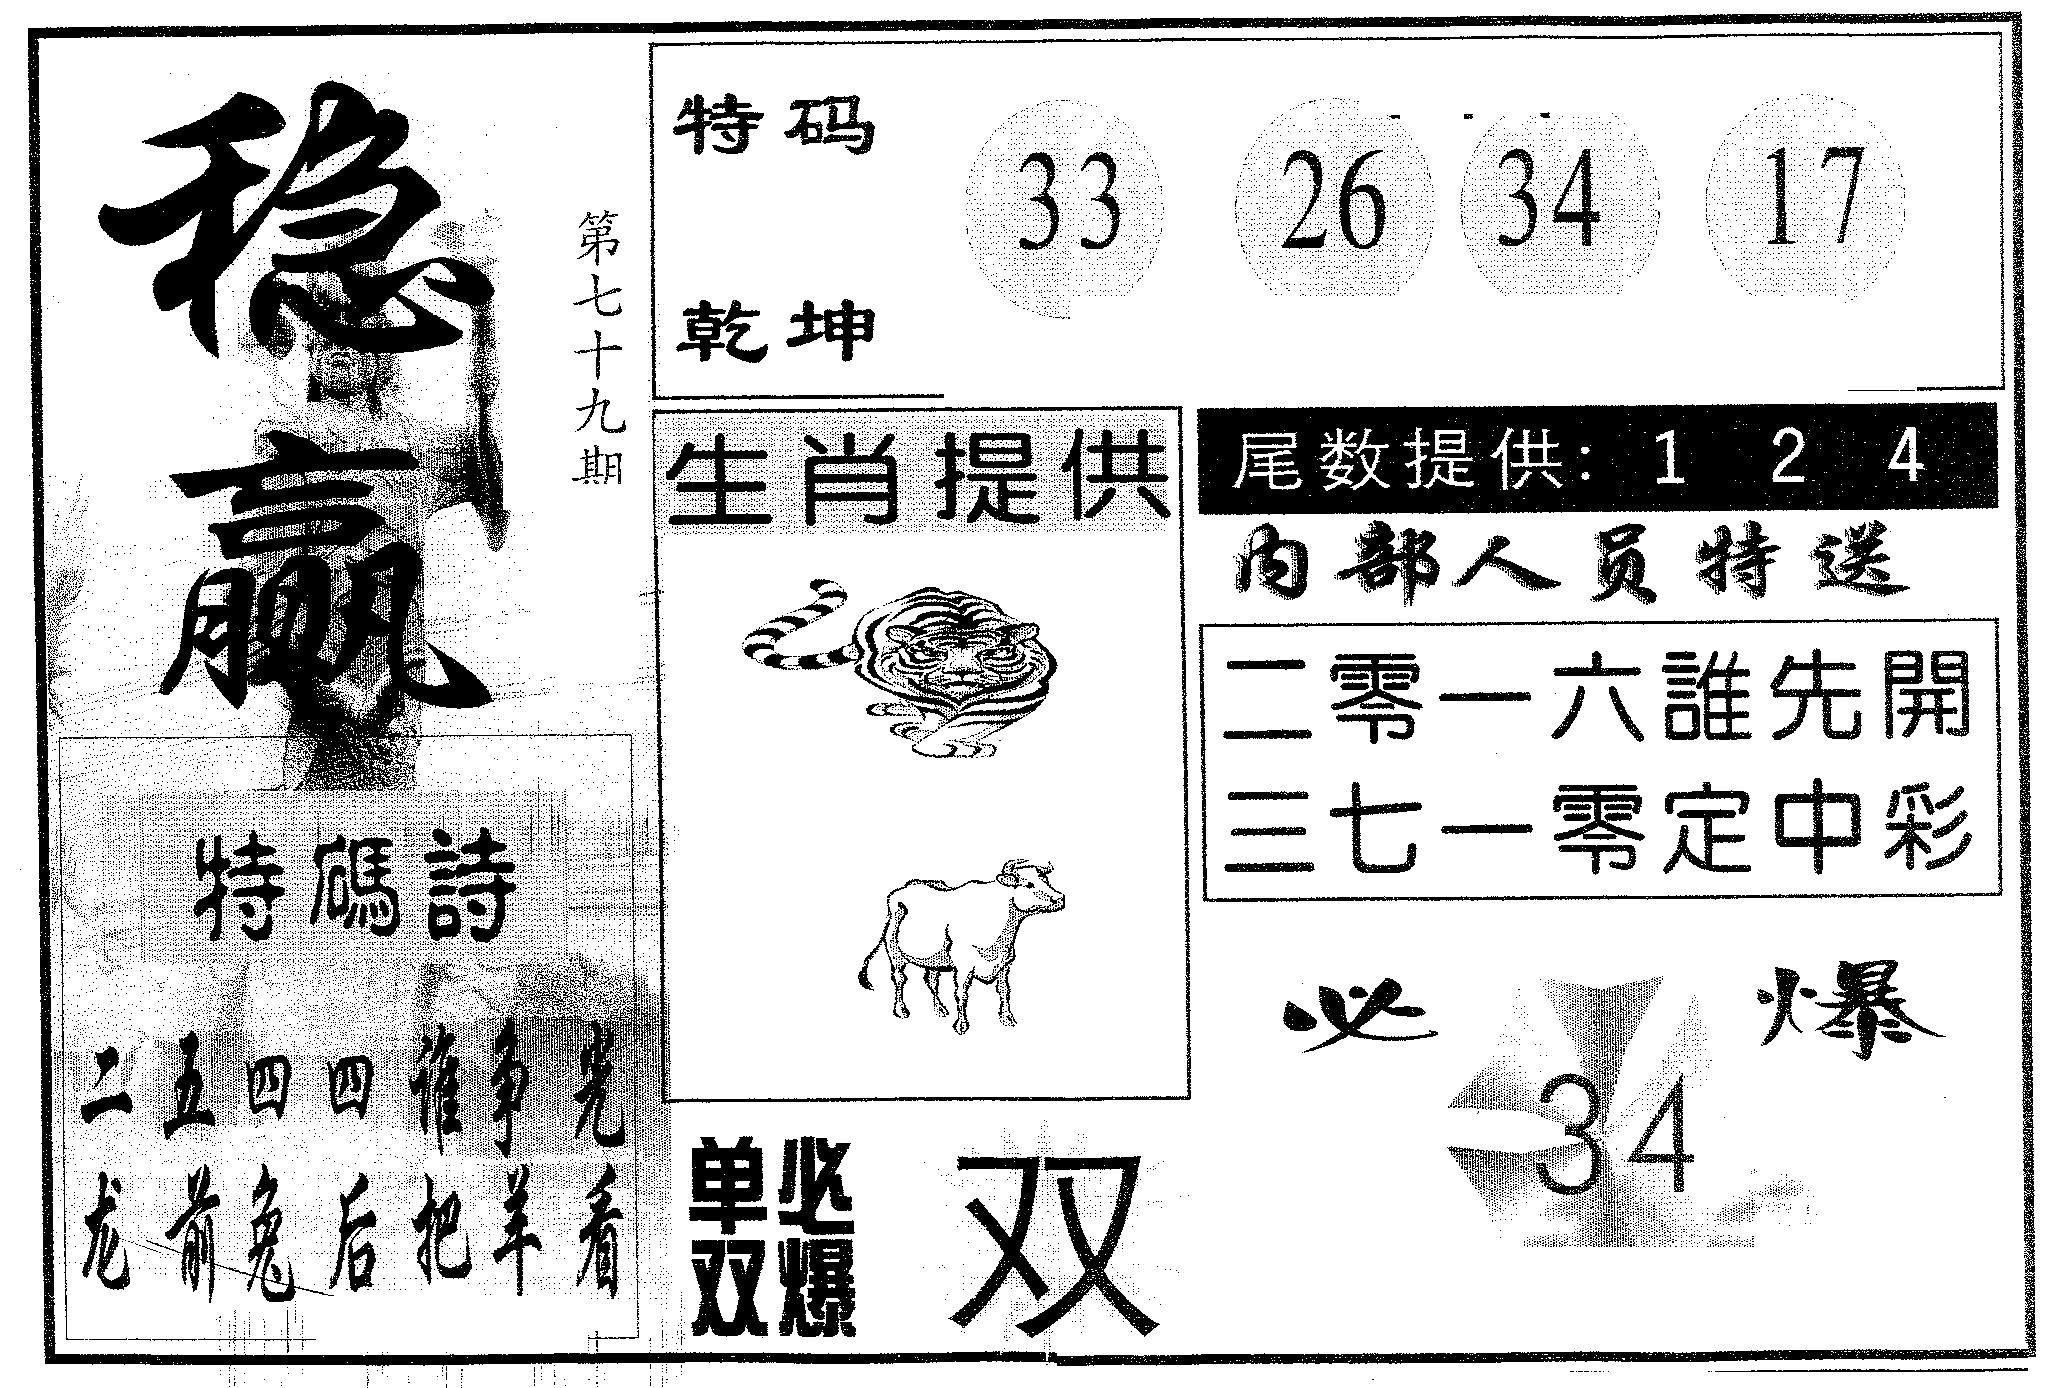 稳赢
第七十九期
特码
乾坤
33 26 34 17
生肖提供
尾数提供: 1 2 4
内部人员特送
二零一六誰先開
三七一零定中彩
特碼詩
二五四四谁争光
龙前兔后把羊看
单双
必爆
双
必爆
34